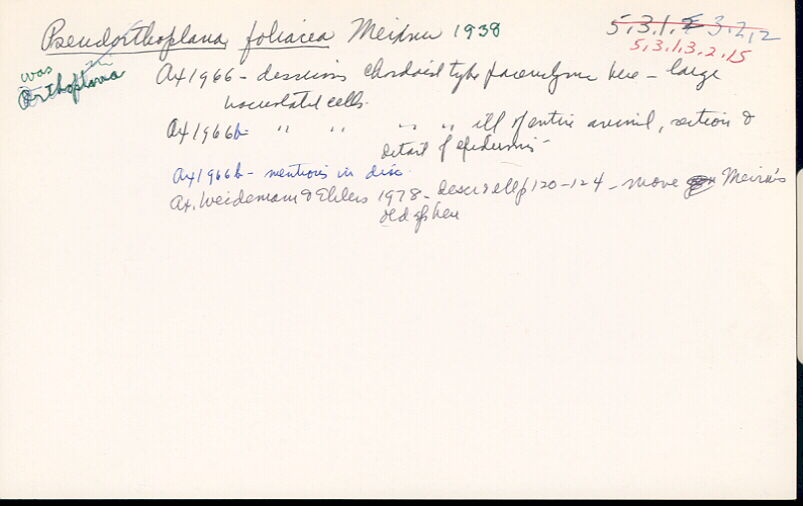 Pseudorthoplana foliacea Meixner 1938
5.3.1.2 3.2.2
5.3.1.3.2.15
was Orthoplana
Ax 1966 - discusses chordoid type parenchyma here - large
vacuolated cells.
Ax 1966b " " " " ill of entire animal, section &
detail of epidermis -
Ax 1966b - mentions in disc.
Ax, Weidemann & Ehlers 1978 - descr & ill p 120-124 - move Meixner's
old sp here